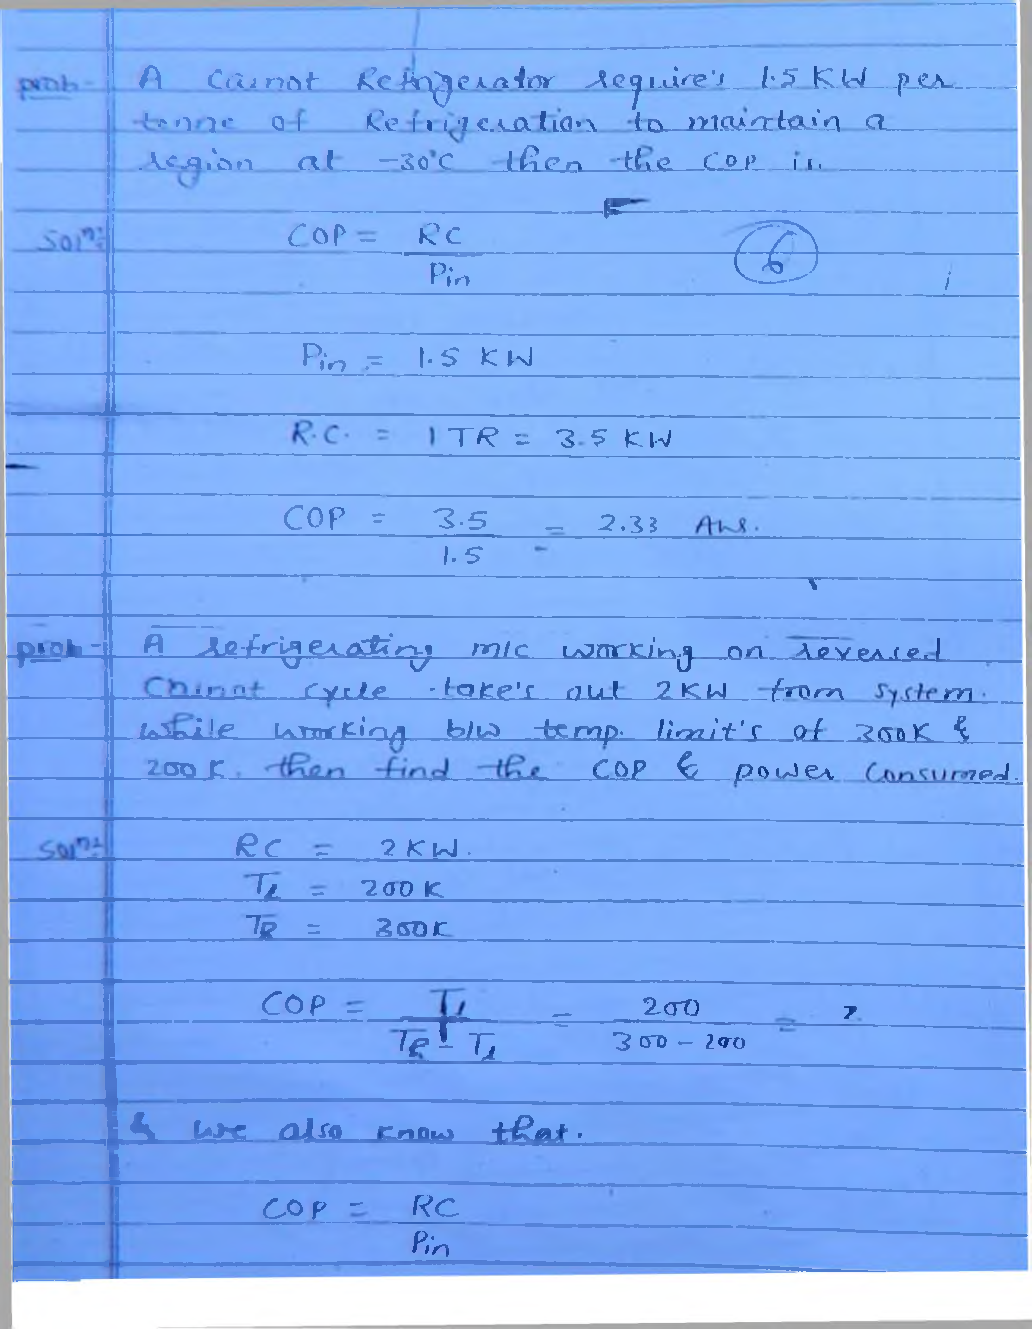 prob- A Carnot Refrigerator require's 1.5 KW per
tonne of Refrigeration to maintain a
region at -30°C then the COP is.
Sol<sup>n</sup>: COP = RC / Pin
6
Pin = 1.5 KW
R.C. = 1 TR = 3.5 KW
COP = 3.5 / 1.5 = 2.33 Ans.
prob- A refrigerating m/c working on reversed
Carnot cycle take's out 2 KW from system.
while working b/w temp. limit's of 300K &
200 K. then find the COP & power consumed.
Sol<sup>n</sup>: RC = 2 KW.
T<sub>L</sub> = 200 K
T<sub>R</sub> = 300K
COP = T<sub>L</sub> / T<sub>R</sub> - T<sub>L</sub> = 200 / 300 - 200 = 2.
& we also know that.
COP = RC / Pin